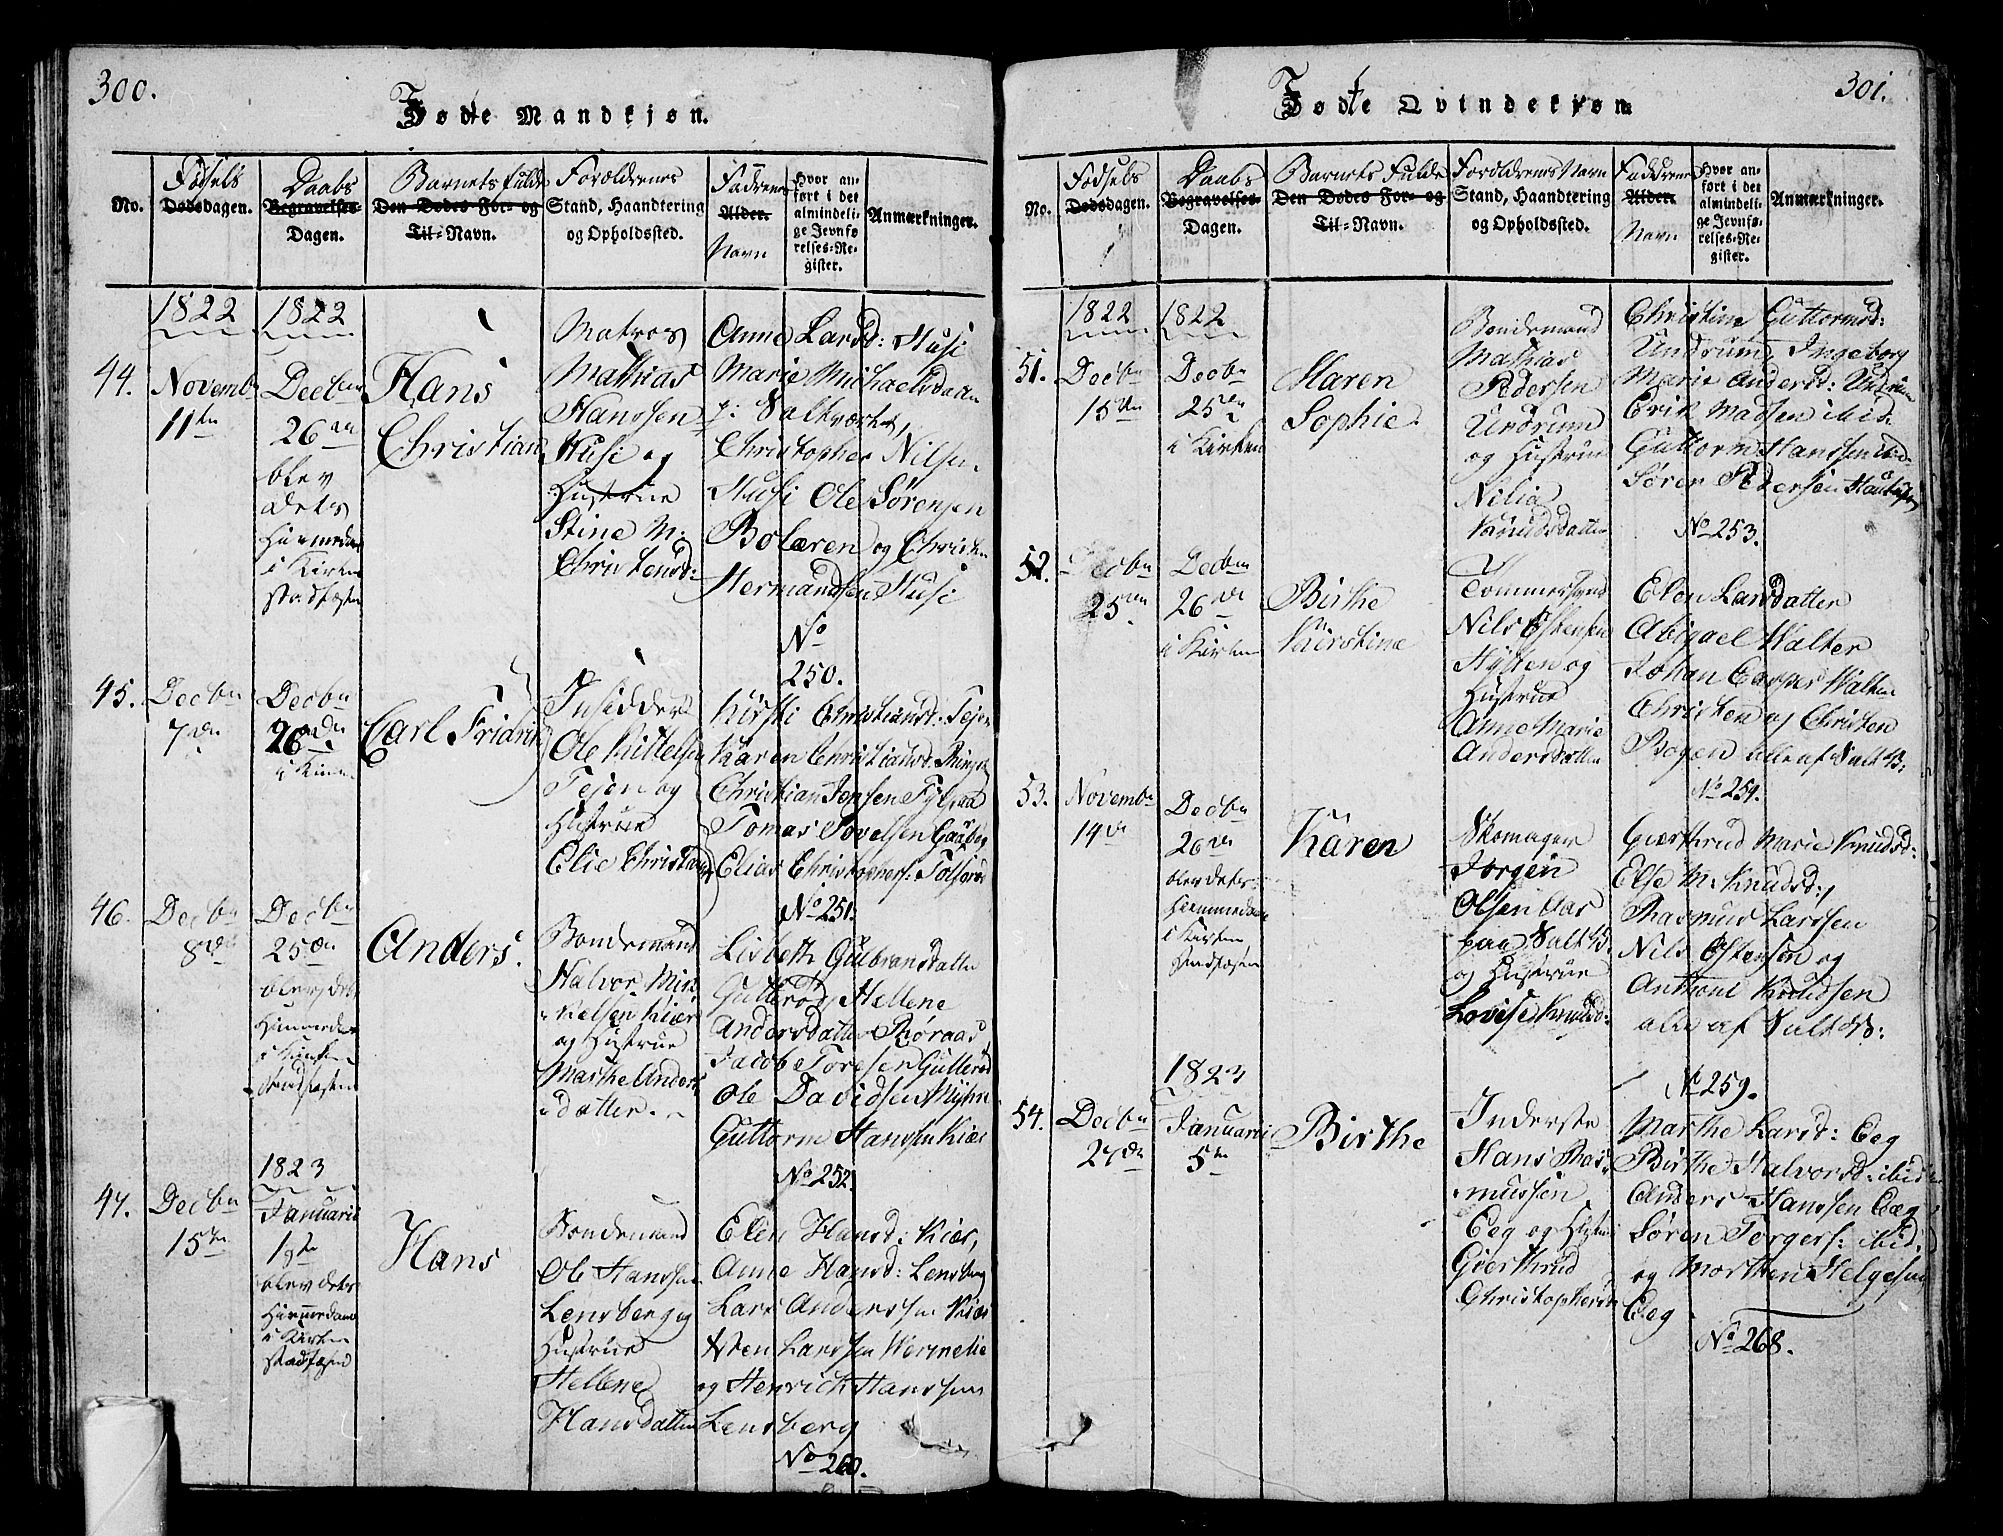 300.
Fødte Mandkjøn.
No.
Fødsels
Dødsdagen.
Daabs
Begravelses-
Dagen.
Barnets Fulde
Den Dødes For- og
Til-Navn.
Forældrenes
Stand, Haandtering
og Opholdssted.
Fadrenes
Alder.
Navn
Hvor an-
ført i det
almindeli-
ge Jevnfø-
relses-Re-
gister.
Anmærkninger.
1822
1822
44.
Novemb
11te
Decbr
26
blev
dets
Hiemmedaab
i Kirken
stadfæstet
Hans
Christian
Matros
Mathias
Hanssen
Husø og
Hustrue
Stine M:
Christensd:
Anne Larsd: Husø
Marie Michaelsdaatter
p: Saltværket,
Christopher Nilsen
Husø Ole Sørensen
Bolæren og Christen
Hermandsen Husø
No
250.
45.
Decbr
7de
Decbr
26de
i Kirken
Carl Fridrik
Insidder
Ole Kittelsen
Tejen og
Hustrue
Elie Christiansd
Kirsti Christiansd: Tejen
Karen Christiansd:
Christian Jensen
Tomas Tovelsen
Elias Christophers:
No 251.
46.
Decbr
8de
Decbr
25de
blev dets
Hiemmedaab
i Kirken
stadfæstet
Anders.
Bondemand
Halvor Mic-
kelsen Kiær
og Hustrue
Marthe Anders-
datter.
Lisbeth Gulbrandsdatter
Gullerød, Hellene
Andersdatter Røraas,
Jacob Toresen Gullerød
Ole Davidsen Myhre
Guttorm Hanssen Kiær
No 252.
47.
Decbr
15de
1823
Januarii
1ste
blev dets
Hiemmedaab
i Kirken
stadfæstet
Hans
Bondemand
Ole Hanssen
Lensberg og
Hustrue
Hellene
Hansdatter
Elen Hansd: Kiær,
Anne Hansd: Lensberg
Lars Anderssen Kiær
Sten Larssen Wermelie
og Henrich Hanssen
Lensberg
No 260.
301.
Fødte Qvindekjøn
No.
Fødsels
Dødsdagen.
Daabs
Begravelses-
Dagen.
Barnets Fulde
Den Dødes For- og
Til-Navn.
Forældrenes Navn
Stand, Haandtering
og Opholdssted.
Faddrene
Alder.
Navn
Hvor an-
ført i det
almindeli-
ge Jevnfø-
relses-Re-
gister.
Anmærkninger.
1822
1822
51.
Decbr
15de
Decbr
25de
i Kirken
Maren
Sophie.
Bondemand
Mathias
Pedersen
Undrum
og Hustrue
Nilia
Knudsdatter
Christine Guttormsd:
Undrum, Ingeborg
Marie Andersd: Undrum
Erik Madsen ibid:
Guttorm Hanssen ibid:
Søren Pedersen
No 253.
52.
Decbr
25de
Decbr
26de
i Kirken
Birthe
Kirstine
Tommermand
Nils Østensen
Hytten og
Hustrue
Anne Marie
Andersdatter
Elen Larsdatter
Abigael Walter
Johan Casper Walter
Christen og Christen
Bogen alle af Salt B:
No 254.
53.
Novembr
14de
Decbr
26de
blev dets
Hiemmedaab
i Kirken
stadfæstet
Karen
Skomager
Jørgen
Olsen Aas
paa Salt B
og Hustrue
Lovise Knudsd:
Giærthrud Marie Knudsd:
Else M: Knudsd:,
Rasmus Larssen
Nils Østensen og
Anthoni Knudsen
alle af Salt B:
No 259.
54.
Decbr
27de
1823
Januarii
5te
Birthe
Inderste
Hans Ras-
mussen
Eeg og Hustrue
Gierthrud
Christophersd
Marthe Larsd: Eeg
Birthe Halvorsd: ibid
Anders Hanssen Eeg
Søren Torgers: ibid:
og Morthen Helgesen
Eeg
No 268.